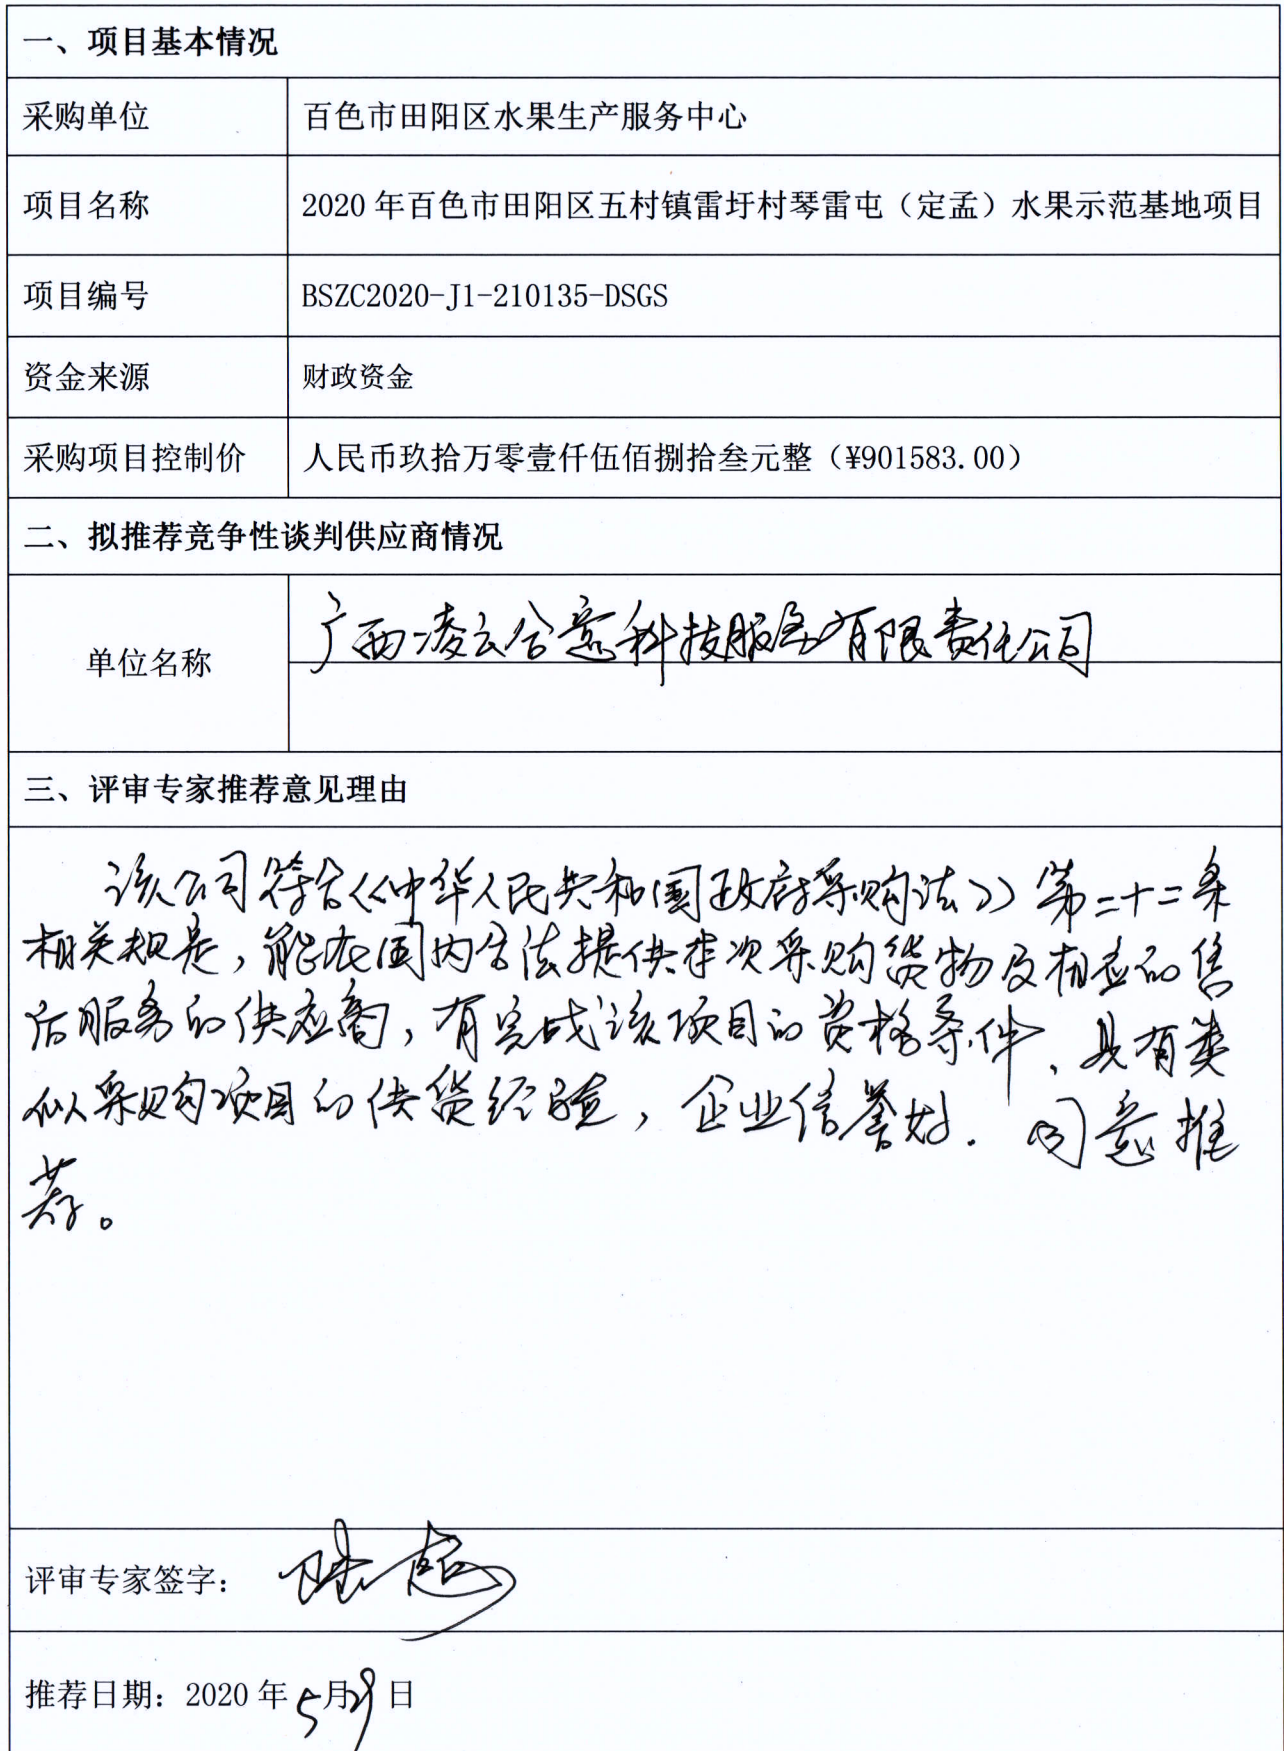 一、项目基本情况
采购单位 百色市田阳区水果生产服务中心
项目名称 2020年百色市田阳区五村镇雷圩村琴雷屯（定孟）水果示范基地项目
项目编号 BSZC2020-J1-210135-DSGS
资金来源 财政资金
采购项目控制价 人民币玖拾万零壹仟伍佰捌拾叁元整（¥901583.00）
二、拟推荐竞争性谈判供应商情况
单位名称 广西凌云合意科技服务有限责任公司
三、评审专家推荐意见理由
该公司符合《中华人民共和国政府采购法》第二十二条
相关规定，能在国内合法提供本次采购货物及相应的售
后服务的供应商，有完成该项目的资格条件、具有类
似采购项目的供货经验，企业信誉好．同意推
荐。
评审专家签字：
推荐日期：2020年5月29日